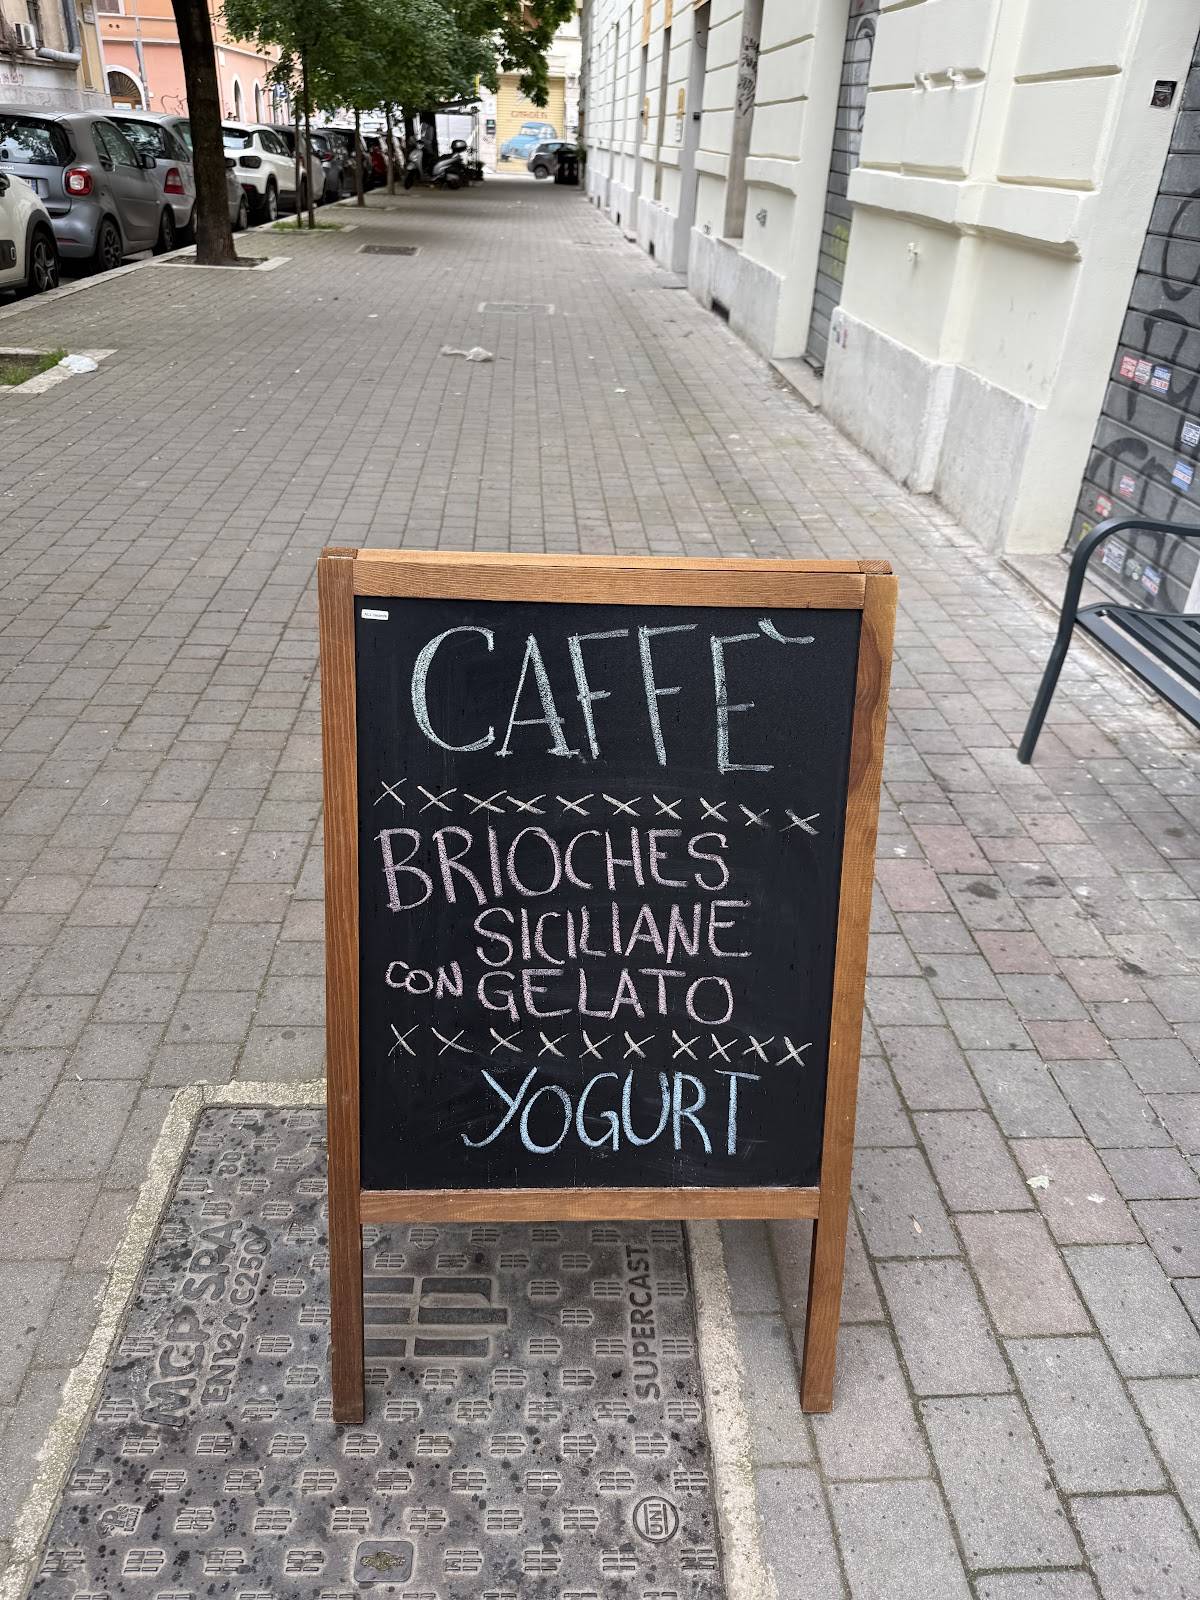 CITROËN
CAFFÈ
×××××××××××
BRIOCHES
SICILIANE
CON GELATO
××××××××××
YOGURT
MGP SPA
EN124 C250
SUPERCAST
UNI